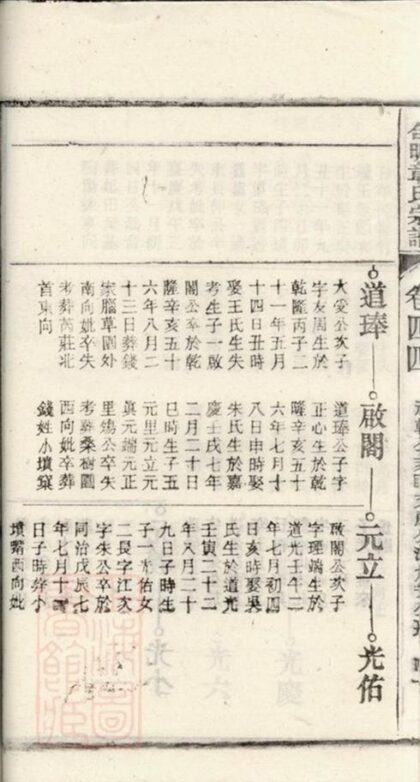 道琫
啟閣
元立
光佑
大愛公次子
字友周生於
乾隆丙子二
十一年五月
十四日丑時
娶王氏生失
考生子一啟
閣公卒於乾
隆辛亥五十
六年八月二
十三日葬錢
家腦草園外
南向妣卒失
考葬芮莊北
首東向
道琫公子字
正心生於乾
隆辛亥五十
六年七月十
八日申時娶
朱氏生於嘉
慶壬戌七年
二月二十日
巳時生子五
元里元立元
眞元端元正
里鴆公卒失
考葬桑樹園
西向妣卒葬
錢姓小墳窠
啟閣公次子
字理端生於
道光壬午二
年七月初四
日亥時娶吳
氏生於道光
壬寅二十二
年八月二十
九日子時生
子一光佑女
二長字江次
字朱公卒於
同治戊辰七
年七月十
日子時葬小
墳觜西向妣